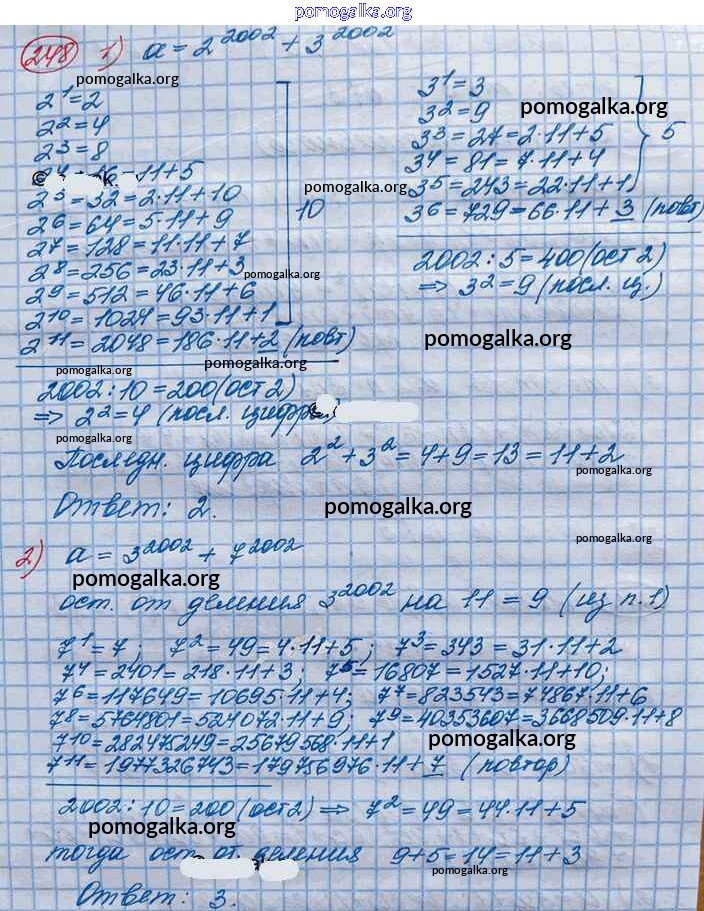 pomogalka.org
248 1) a = 2^2002 + 3^2002
pomogalka.org
2^1 = 2
2^2 = 4
2^3 = 8
11+5
2^5 = 32 = 2·11+10
2^6 = 64 = 5·11+9
2^7 = 128 = 11·11+7
2^8 = 256 = 23·11+3
2^9 = 512 = 46·11+6
2^10 = 1024 = 93·11+1
2^11 = 2048 = 186·11+2 (повт)
10
pomogalka.org
pomogalka.org
pomogalka.org
pomogalka.org
2002 : 10 = 200 (ост 2)
=> 2^2 = 4 (посл. цифра)
3^1 = 3
3^2 = 9
pomogalka.org
3^3 = 27 = 2·11+5
3^4 = 81 = 7·11+4
3^5 = 243 = 22·11+1
3^6 = 729 = 66·11+3 (повт)
5
2002 : 5 = 400 (ост 2)
=> 3^2 = 9 (посл. ц.)
pomogalka.org
pomogalka.org
Последн. цифра 2^2 + 3^2 = 4+9 = 13 = 11+2
pomogalka.org
Ответ: 2.
pomogalka.org
pomogalka.org
2) a = 3^2002 + 7^2002
pomogalka.org
ост. от деления 3^2002 на 11 = 9 (из п.1)
7^1 = 7; 7^2 = 49 = 4·11+5; 7^3 = 343 = 31·11+2
7^4 = 2401 = 218·11+3; 7^5 = 16807 = 1527·11+10;
7^6 = 117649 = 10695·11+4; 7^7 = 823543 = 74867·11+6
7^8 = 5764801 = 524072·11+9; 7^9 = 40353607 = 3668509·11+8
7^10 = 282475249 = 25679568·11+1
pomogalka.org
7^11 = 1977326743 = 179756976·11+7 (повтор)
2002 : 10 = 200 (ост 2) => 7^2 = 49 = 44·11+5
pomogalka.org
тогда ост. от деления 9+5 = 14 = 11+3
pomogalka.org
Ответ: 3.